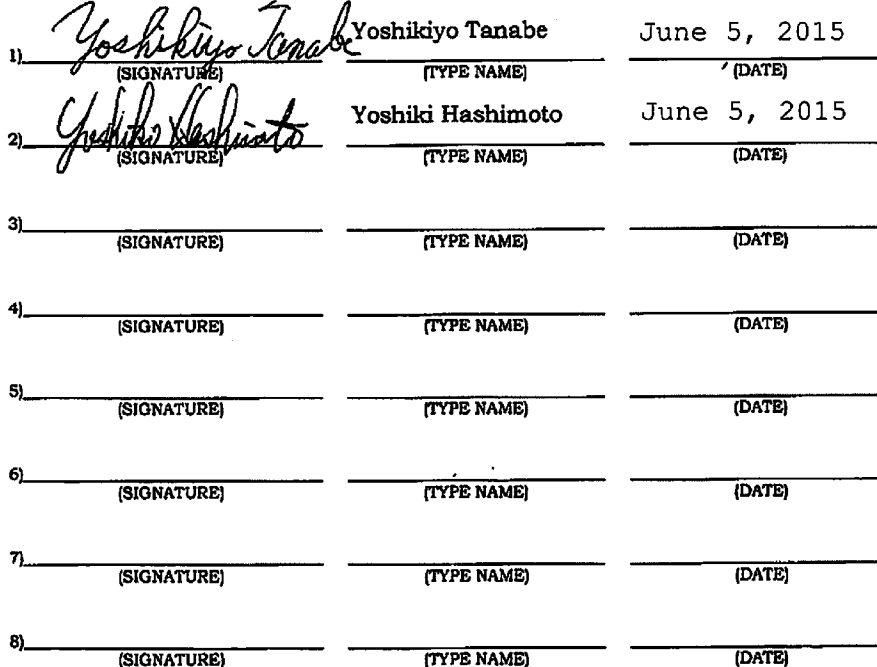 Yoshikiyo Tanabe Yoshikiyo Tanabe June 5, 2015
1) (SIGNATURE) (TYPE NAME) (DATE)
Yoshiki Hashimoto Yoshiki Hashimoto June 5, 2015
2) (SIGNATURE) (TYPE NAME) (DATE)
3) (SIGNATURE) (TYPE NAME) (DATE)
4) (SIGNATURE) (TYPE NAME) (DATE)
5) (SIGNATURE) (TYPE NAME) (DATE)
6) (SIGNATURE) (TYPE NAME) (DATE)
7) (SIGNATURE) (TYPE NAME) (DATE)
8) (SIGNATURE) (TYPE NAME) (DATE)